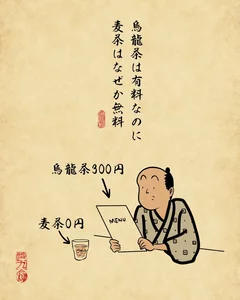 烏龍茶は有料なのに
麦茶はなぜか無料
烏龍茶300円
麦茶0円
MENU